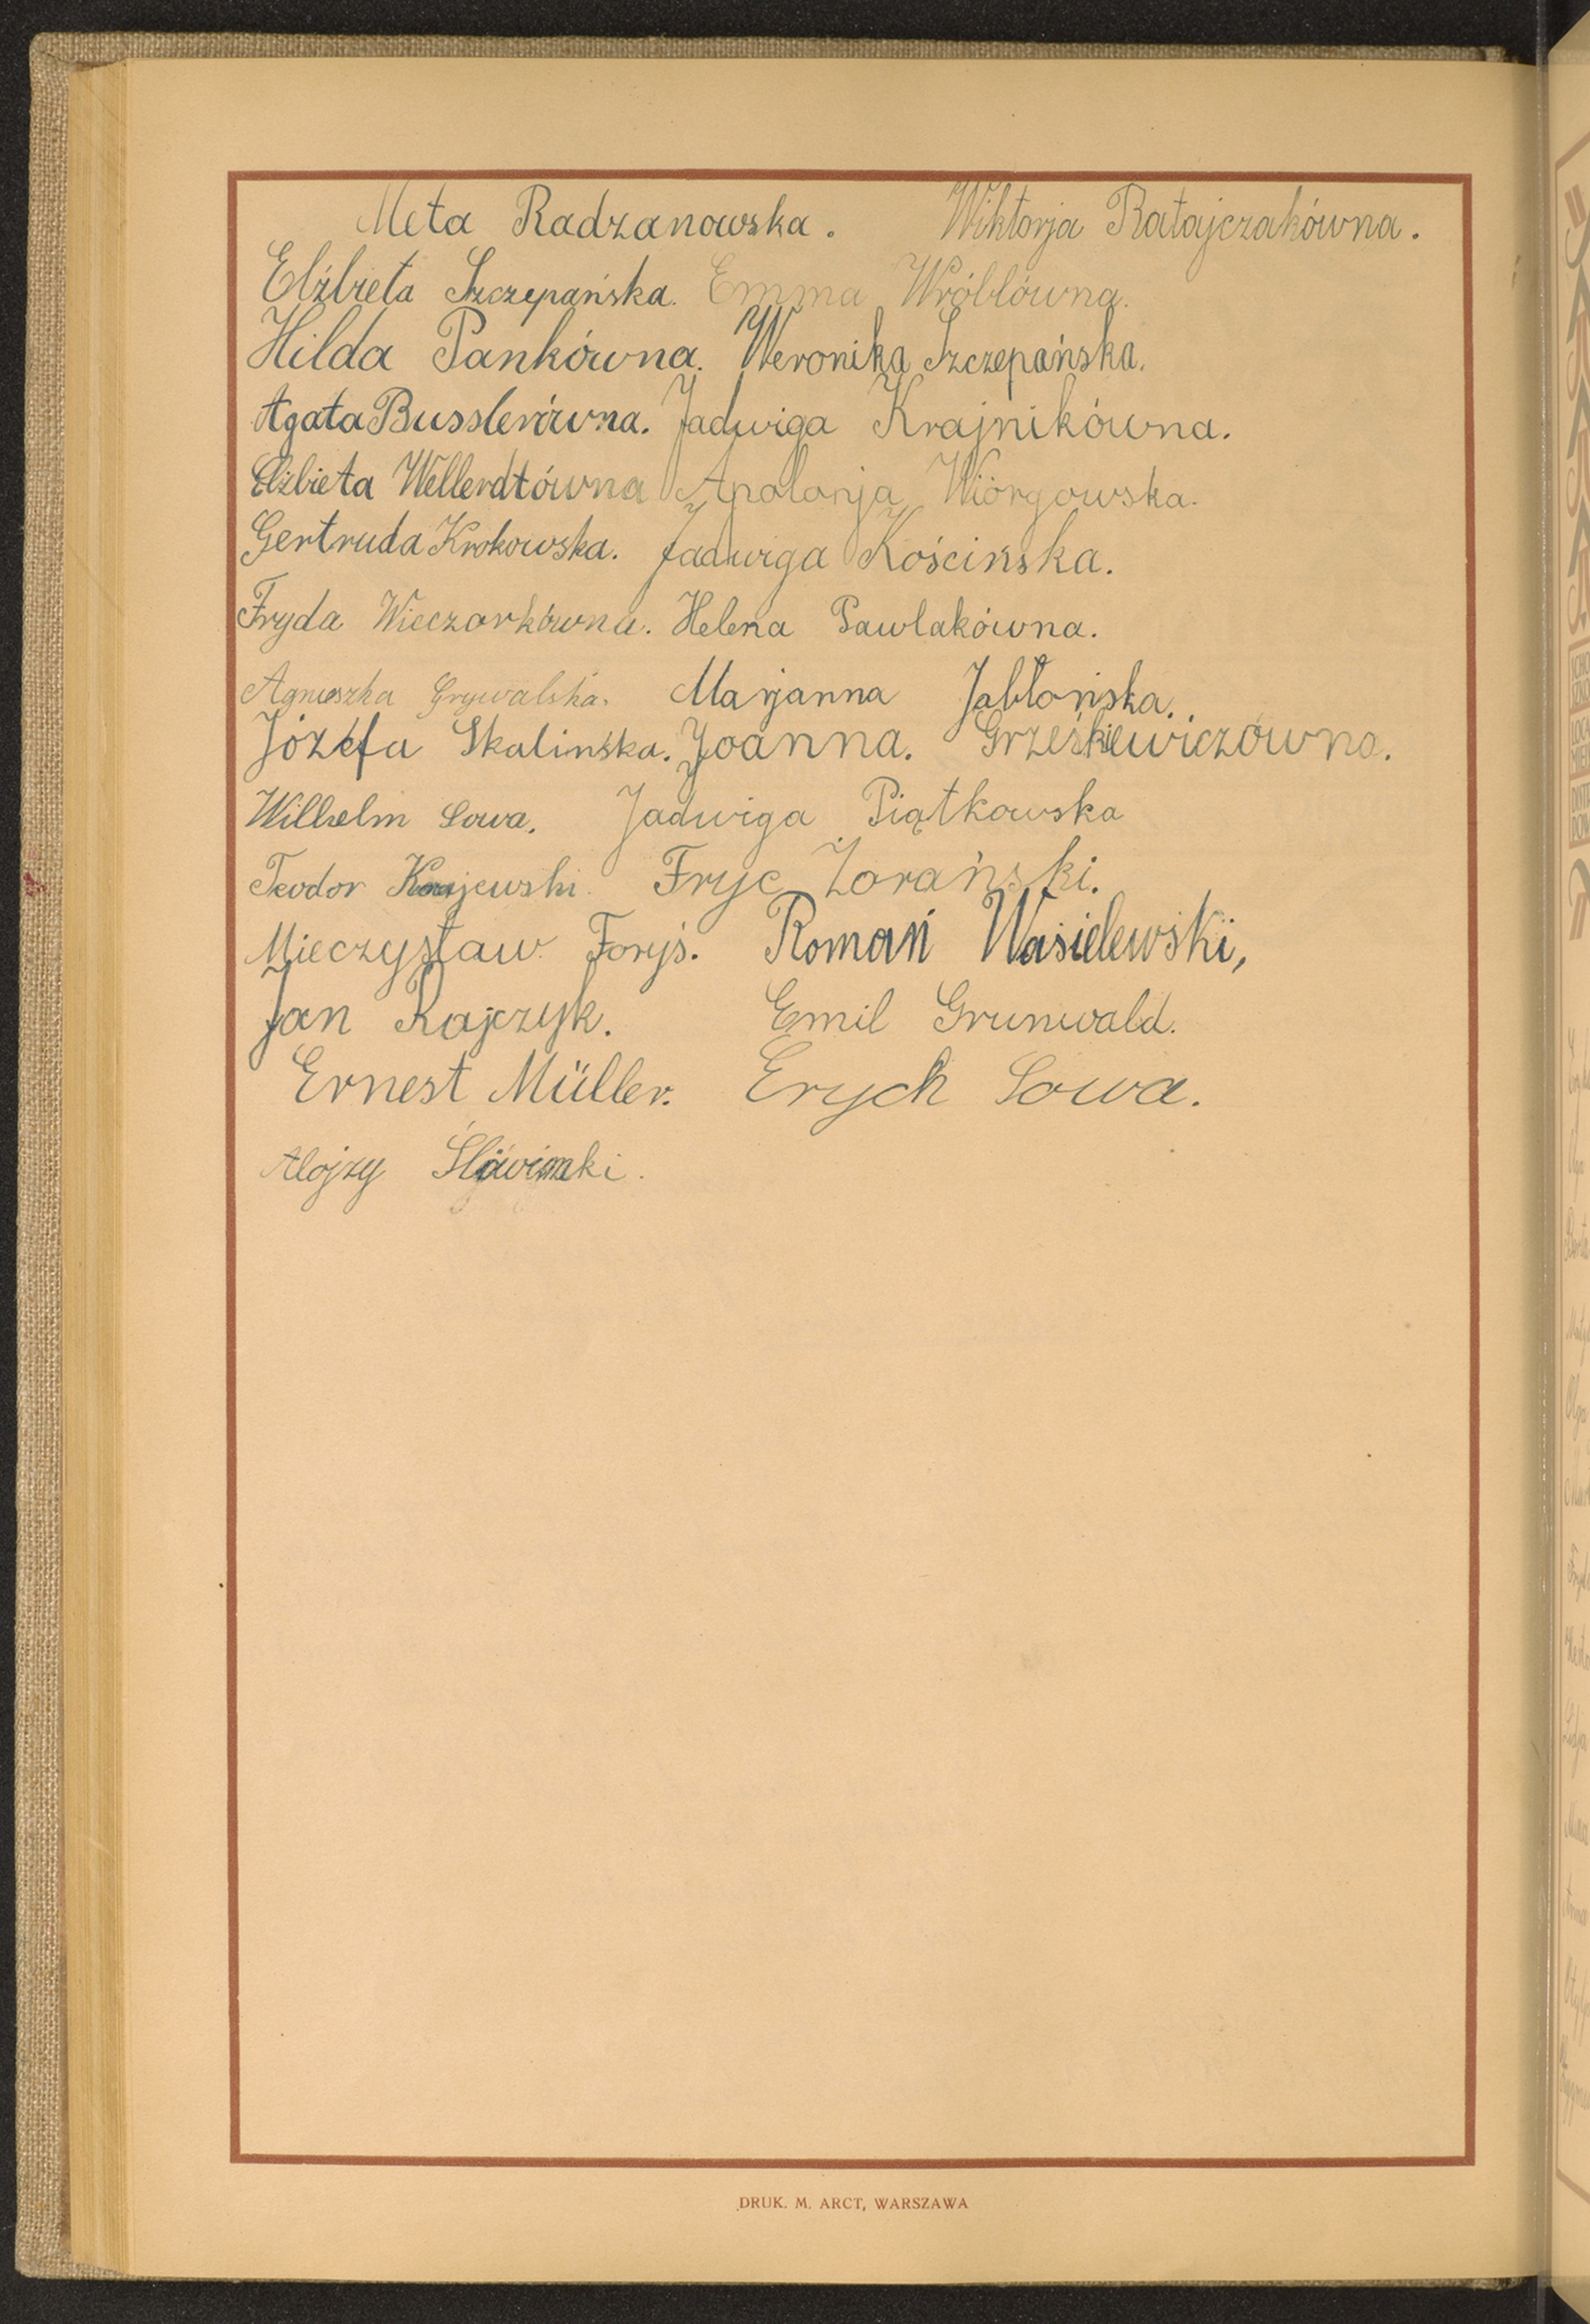 Meta Radzanowska. Wiktorja Ratajczakówna.
Elżbieta Szczepańska. Emma Wróblówna.
Hilda Pankówna. Weronika Szczepańska.
Agata Busslerówna. Jadwiga Krajnikówna.
Elżbieta Wellerdtówna Apolonja Wiórgowska.
Gertruda Krokowska. Jadwiga Kościńska.
Fryda Wieczorkówna. Helena Pawlakówna.
Agnieszka Grywalska. Marjanna Jabłońska.
Józefa Skalińska. Joanna. Grześkiewiczówna.
Wilhelm Sowa. Jadwiga Piątkowska
Teodor Krajewski. Fryc Żorański.
Mieczysław Foryś. Roman Wasielewski,
Jan Rajczyk. Emil Grunwald.
Ernest Müller. Erych Sowa.
Alojzy
DRUK. M. ARCT, WARSZAWA